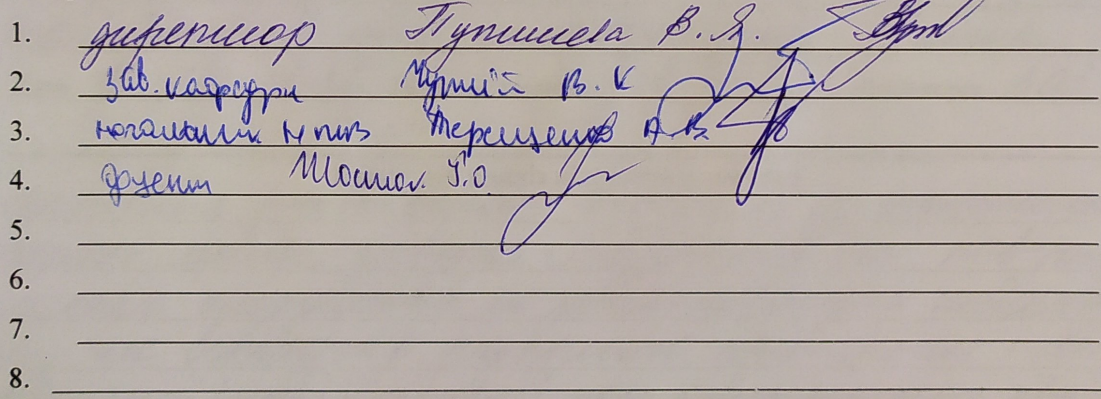 1. директор Путишева В. Я.
2. зав. кафедри Чуткій В. К
3. начальник Терещенко А. В.
4. доцент Г.О
5.
6.
7.
8.